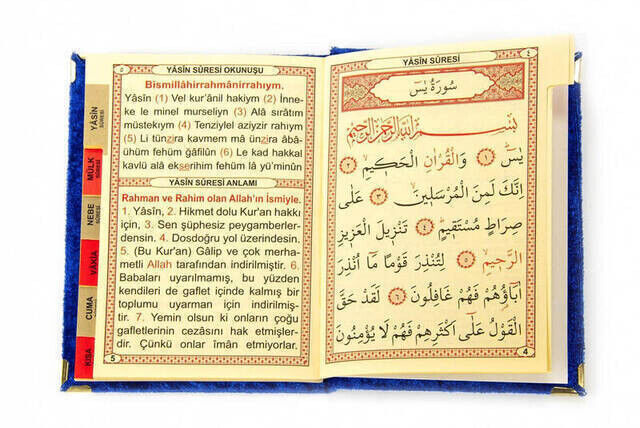 YÂSİN SÛRESİ OKUNUŞU
٥
Bismillâhirrahmânirrahıym.
Yâsîn (1) Vel kur'ânil hakiym (2) İnne-
ke le minel murseliyn (3) Alâ sırâtım
müstekıym (4) Tenziylel aziyzir rahıym
(5) Li tünzira kavmem mâ ünzira âbâ-
ühüm fehüm ğâfilûn (6) Le kad hakkal
kavlü alâ ekserihim fehüm lâ yü'minûn
YÂSİN SÛRESİ ANLAMI
Rahman ve Rahim olan Allah'ın İsmiyle.
1. Yâsîn, 2. Hikmet dolu Kur'an hakkı
için, 3. Sen şüphesiz peygamberler-
densin. 4. Dosdoğru yol üzerindesin.
5. (Bu Kur'an) Gâlip ve çok merha-
metli Allah tarafından indirilmiştir. 6.
Babaları uyarılmamış, bu yüzden
kendileri de gaflet içinde kalmış bir
toplumu uyarman için indirilmiş-
tir. 7. Yemin olsun ki onların çoğu
gafletlerinin cezasını hak etmişler-
dir. Çünkü onlar îmân etmiyorlar.
5
YÂSİN SÛRESİ
MÜLK SÛRESİ
NEBE SÛRESİ
VÂKIA
CUMA
KISA
YÂSİN SÛRESİ
٤
سُورَةُ يٰسٓ
بِسْمِ اللّٰهِ الرَّحْمٰنِ الرَّحِيمِ
يٰسٓ ﴿١﴾ وَالْقُرْاٰنِ الْحَكِيمِ ﴿٢﴾
اِنَّكَ لَمِنَ الْمُرْسَلِينَ ﴿٣﴾ عَلٰى
صِرَاطٍ مُسْتَقِيمٍ ﴿٤﴾ تَنْزِيلَ الْعَزِيزِ
الرَّحِيمِ ﴿٥﴾ لِتُنْذِرَ قَوْمًا مَٓا اُنْذِرَ
اٰبَٓاؤُهُمْ فَهُمْ غَافِلُونَ ﴿٦﴾ لَقَدْ حَقَّ
الْقَوْلُ عَلٰٓى اَكْثَرِهِمْ فَهُمْ لَا يُؤْمِنُونَ
4